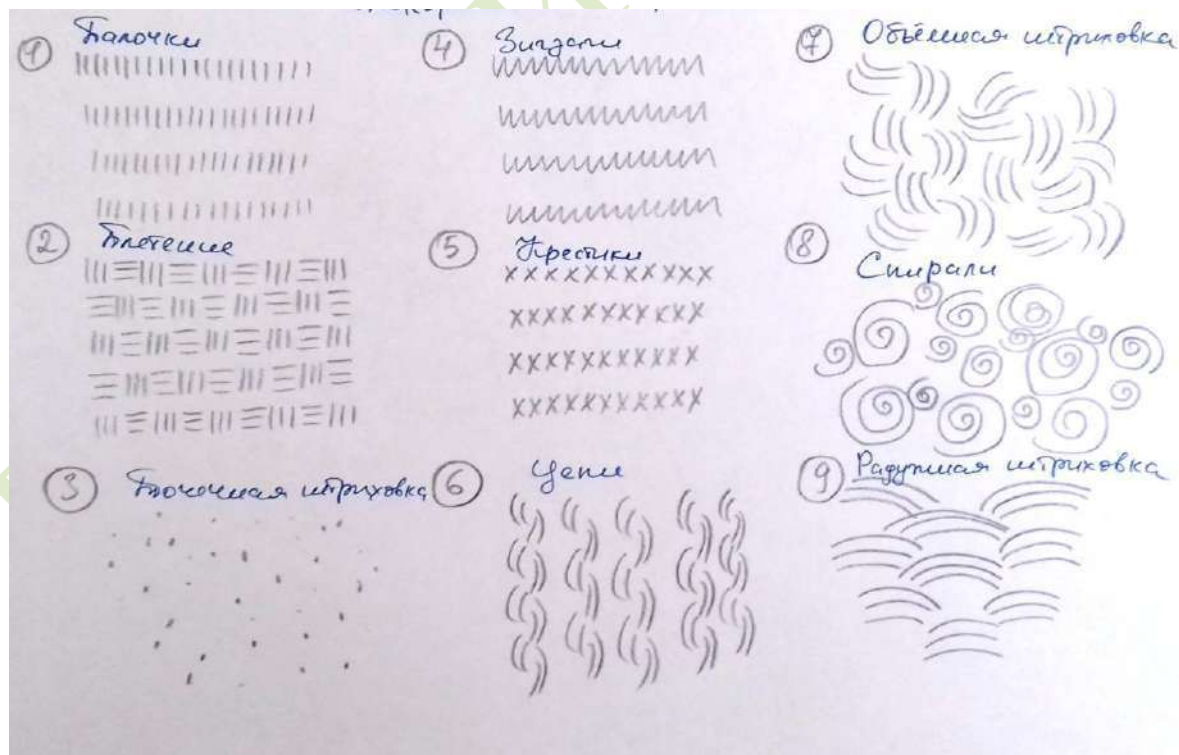 1 Палочки
2 Плетение
3 Точечная штриховка
4 Зигзаги
5 Крестики
6 Цепи
7 Объёмная штриховка
8 Спирали
9 Радужная штриховка